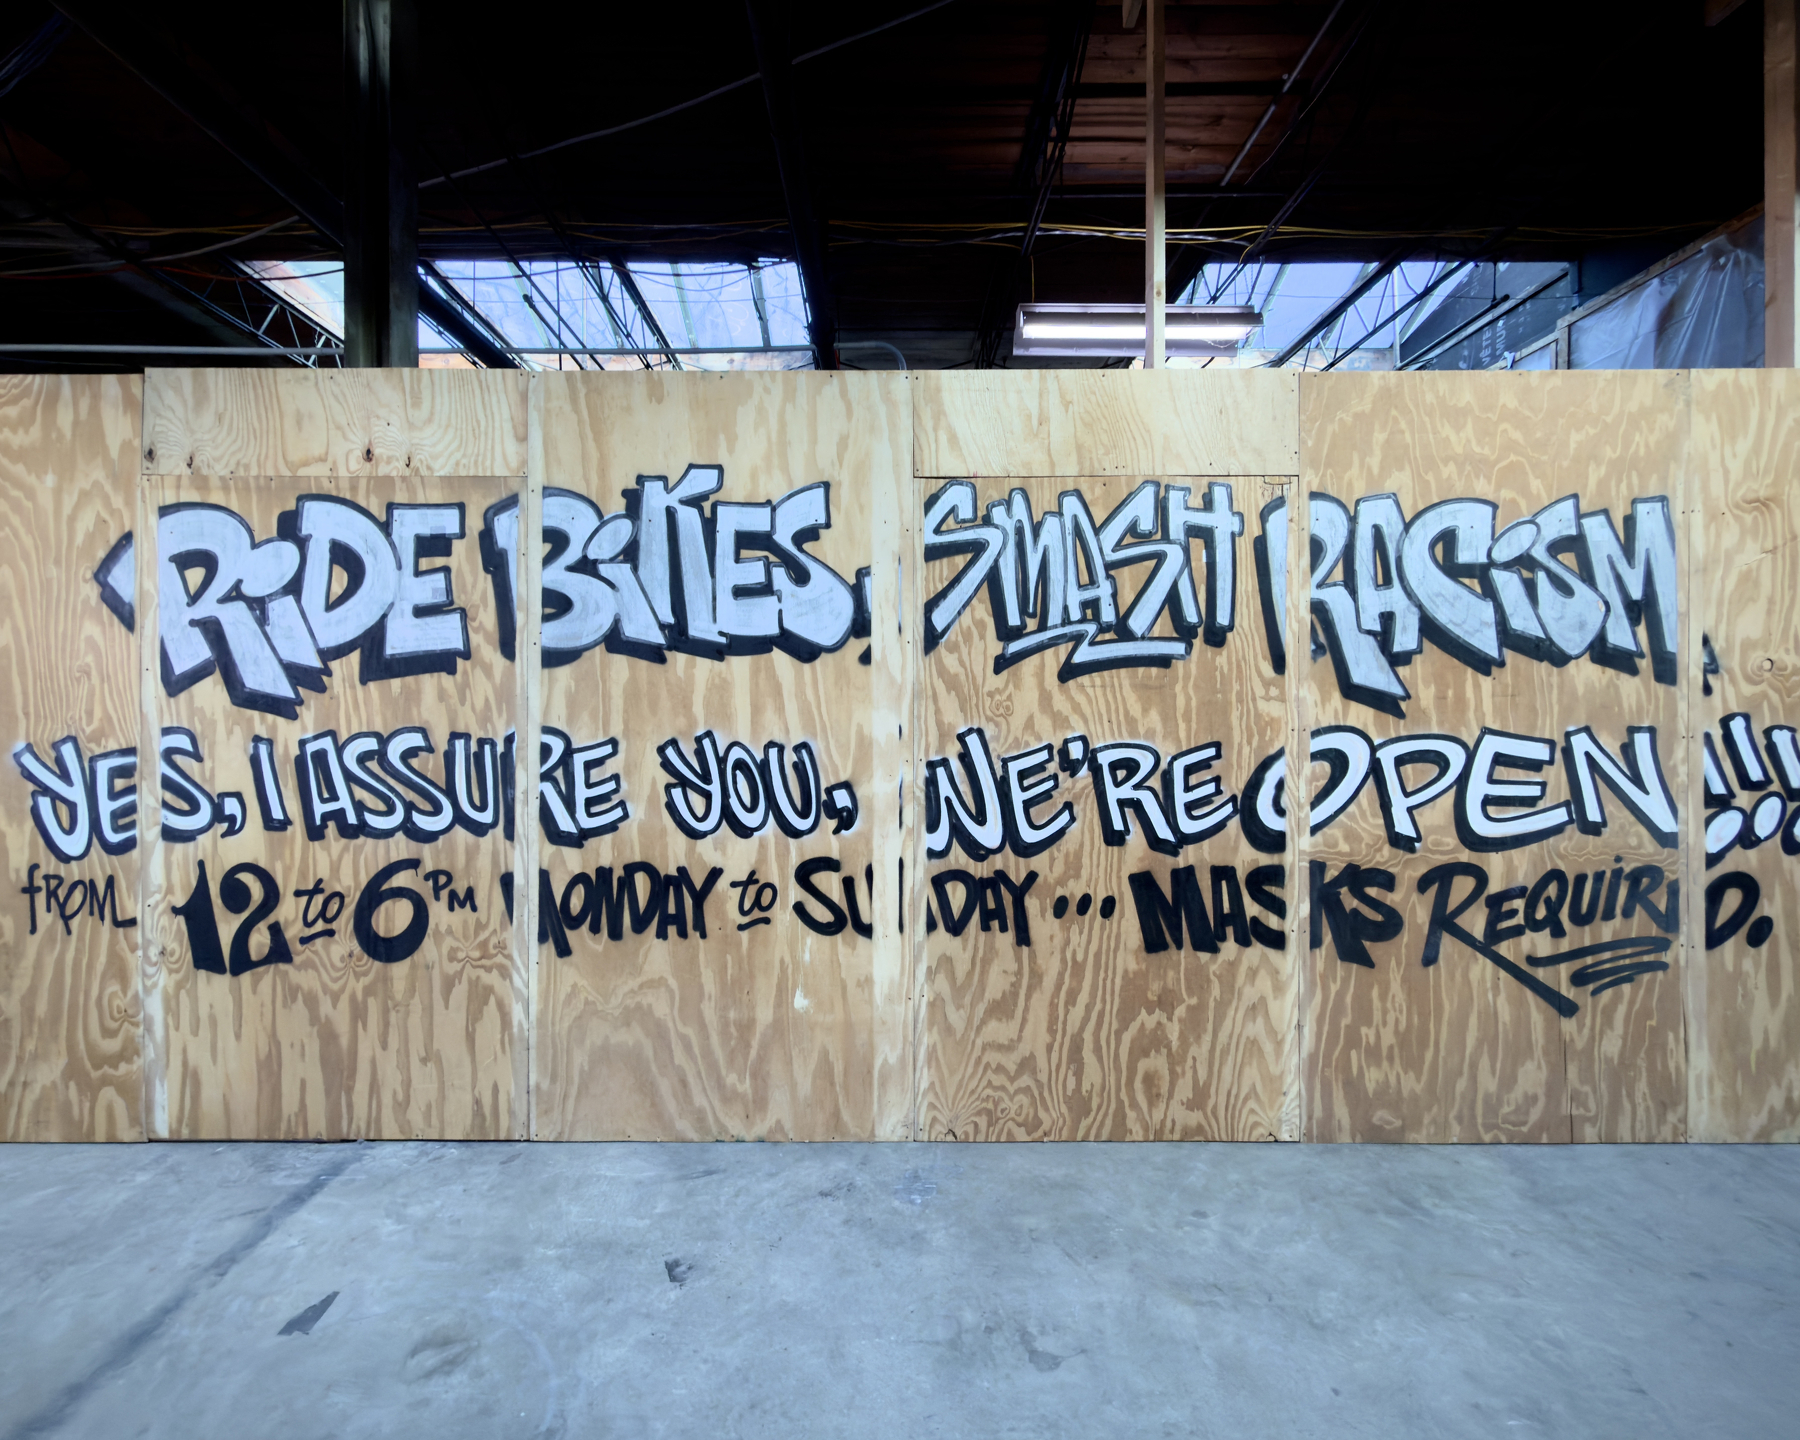 RiDE BiKES, SMASH RACiSM,
YES, I ASSURE YOU, WE'RE OPEN!!!
fROM 12 to 6PM MONDAY to SUNDAY... MASKS REQUiRED.